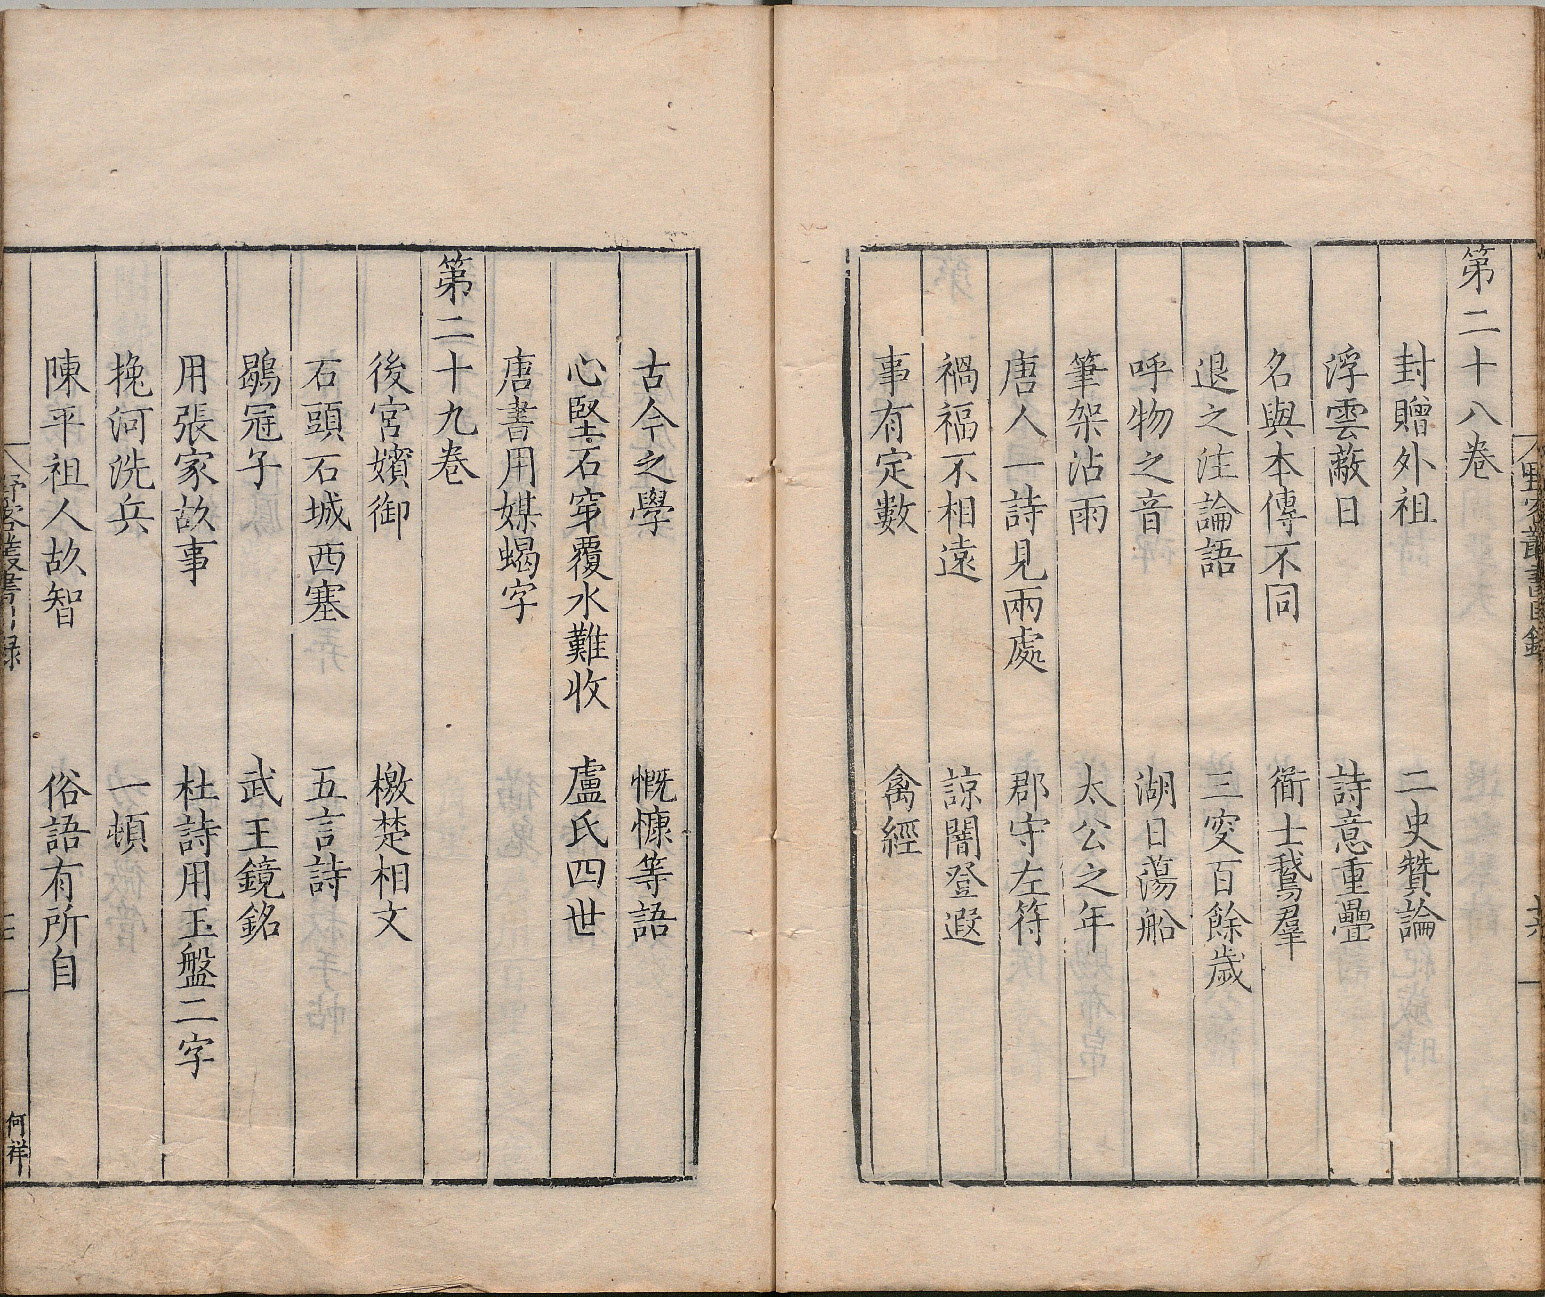 第二十八卷
封贈外祖　二史贊論
浮雲蔽日　詩意重疊
名與本傳不同　衙士鵝羣
退之注論語　三变百餘歲
呼物之音　湖日蕩船
筆架沾雨　太公之年
唐人一詩見兩處　郡守左符
禍福不相遠　諒闇登遐
事有定數　禽經
古今之學　慨慷等語
心堅石穿覆水難收　盧氏四世
唐書用媒蝎字
第二十九卷
後宮嬪御　檄楚相文
石頭石城西塞　五言詩
鶡冠子　武王鏡銘
用張家故事　杜詩用玉盤二字
挽河洗兵　一頓
陳平祖人故智　俗語有所自
野客叢書目錄
何祥